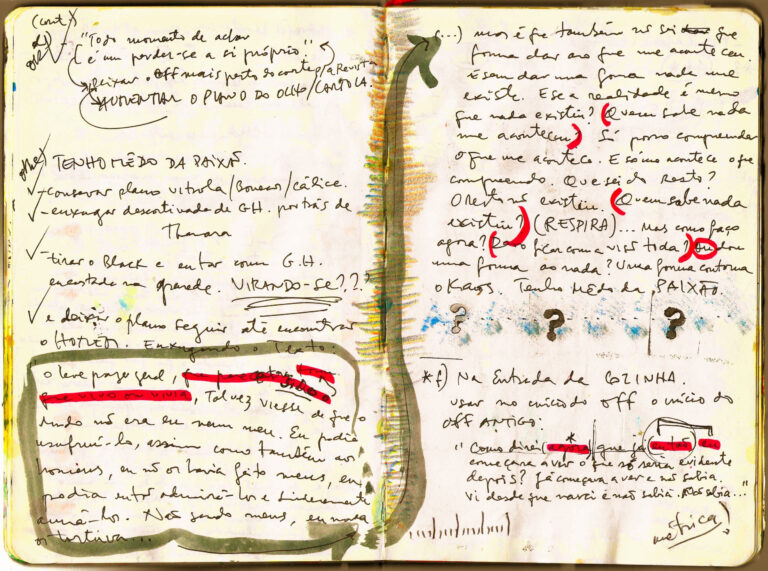 (cont.)
"Todo momento de achar
é um perder-se a si próprio".
Deixar o off mais perto do corte
AUMENTAR O PLANO DO OLHO/CARTOLA.
TENHO MÊDO DA PAIXÃO.
- conservar plano vitrola/Bonecos/cálice.
- enxugar descortinada de G.H. por trás de
- tirar o Black e entrar com G.H.
encostada na parede. VIRANDO-SE??
e deixar o plano seguir até encontrar
o HOMEM. Enxugando o Texto:
o leve prazer geral,
que vivo ou vivia, Talvez viesse de que o
mundo não era eu nem meu. Eu podia
usufruí-lo, assim como também aos
homens, eu não os havia feito meus, eu
podia então admirá-los e sinceramente
amá-los. Não sendo meus, eu nunca
os torturava...
(...) mas é que também não sei que
forma dar ao que me aconteceu.
E sem dar uma forma nada me
existe. E se a realidade é mesmo
que nada existiu? (Quem sabe nada
me aconteceu?) Só posso compreender
o que me acontece. E só me acontece o que
compreendo. Que sei do Resto?
O Resto não existiu. (Quem sabe nada
existiu?) (RESPIRA)... Mas como faço
agora? (Devo ficar com a visão toda?) Ou dou
uma forma ao nada? Uma forma contorna
o Kaos. Tenho Mêdo da PAIXÃO.
? ? ?
* f) Na Entrada da COZINHA.
usar no início do off o início do
OFF ANTIGO:
"Como direi agora que já então eu
começara a ver o que só seria evidente
depois? Já começara a ver e não sabia.
Vi desde que nasci e não sabia. Não sabia..."
métrica